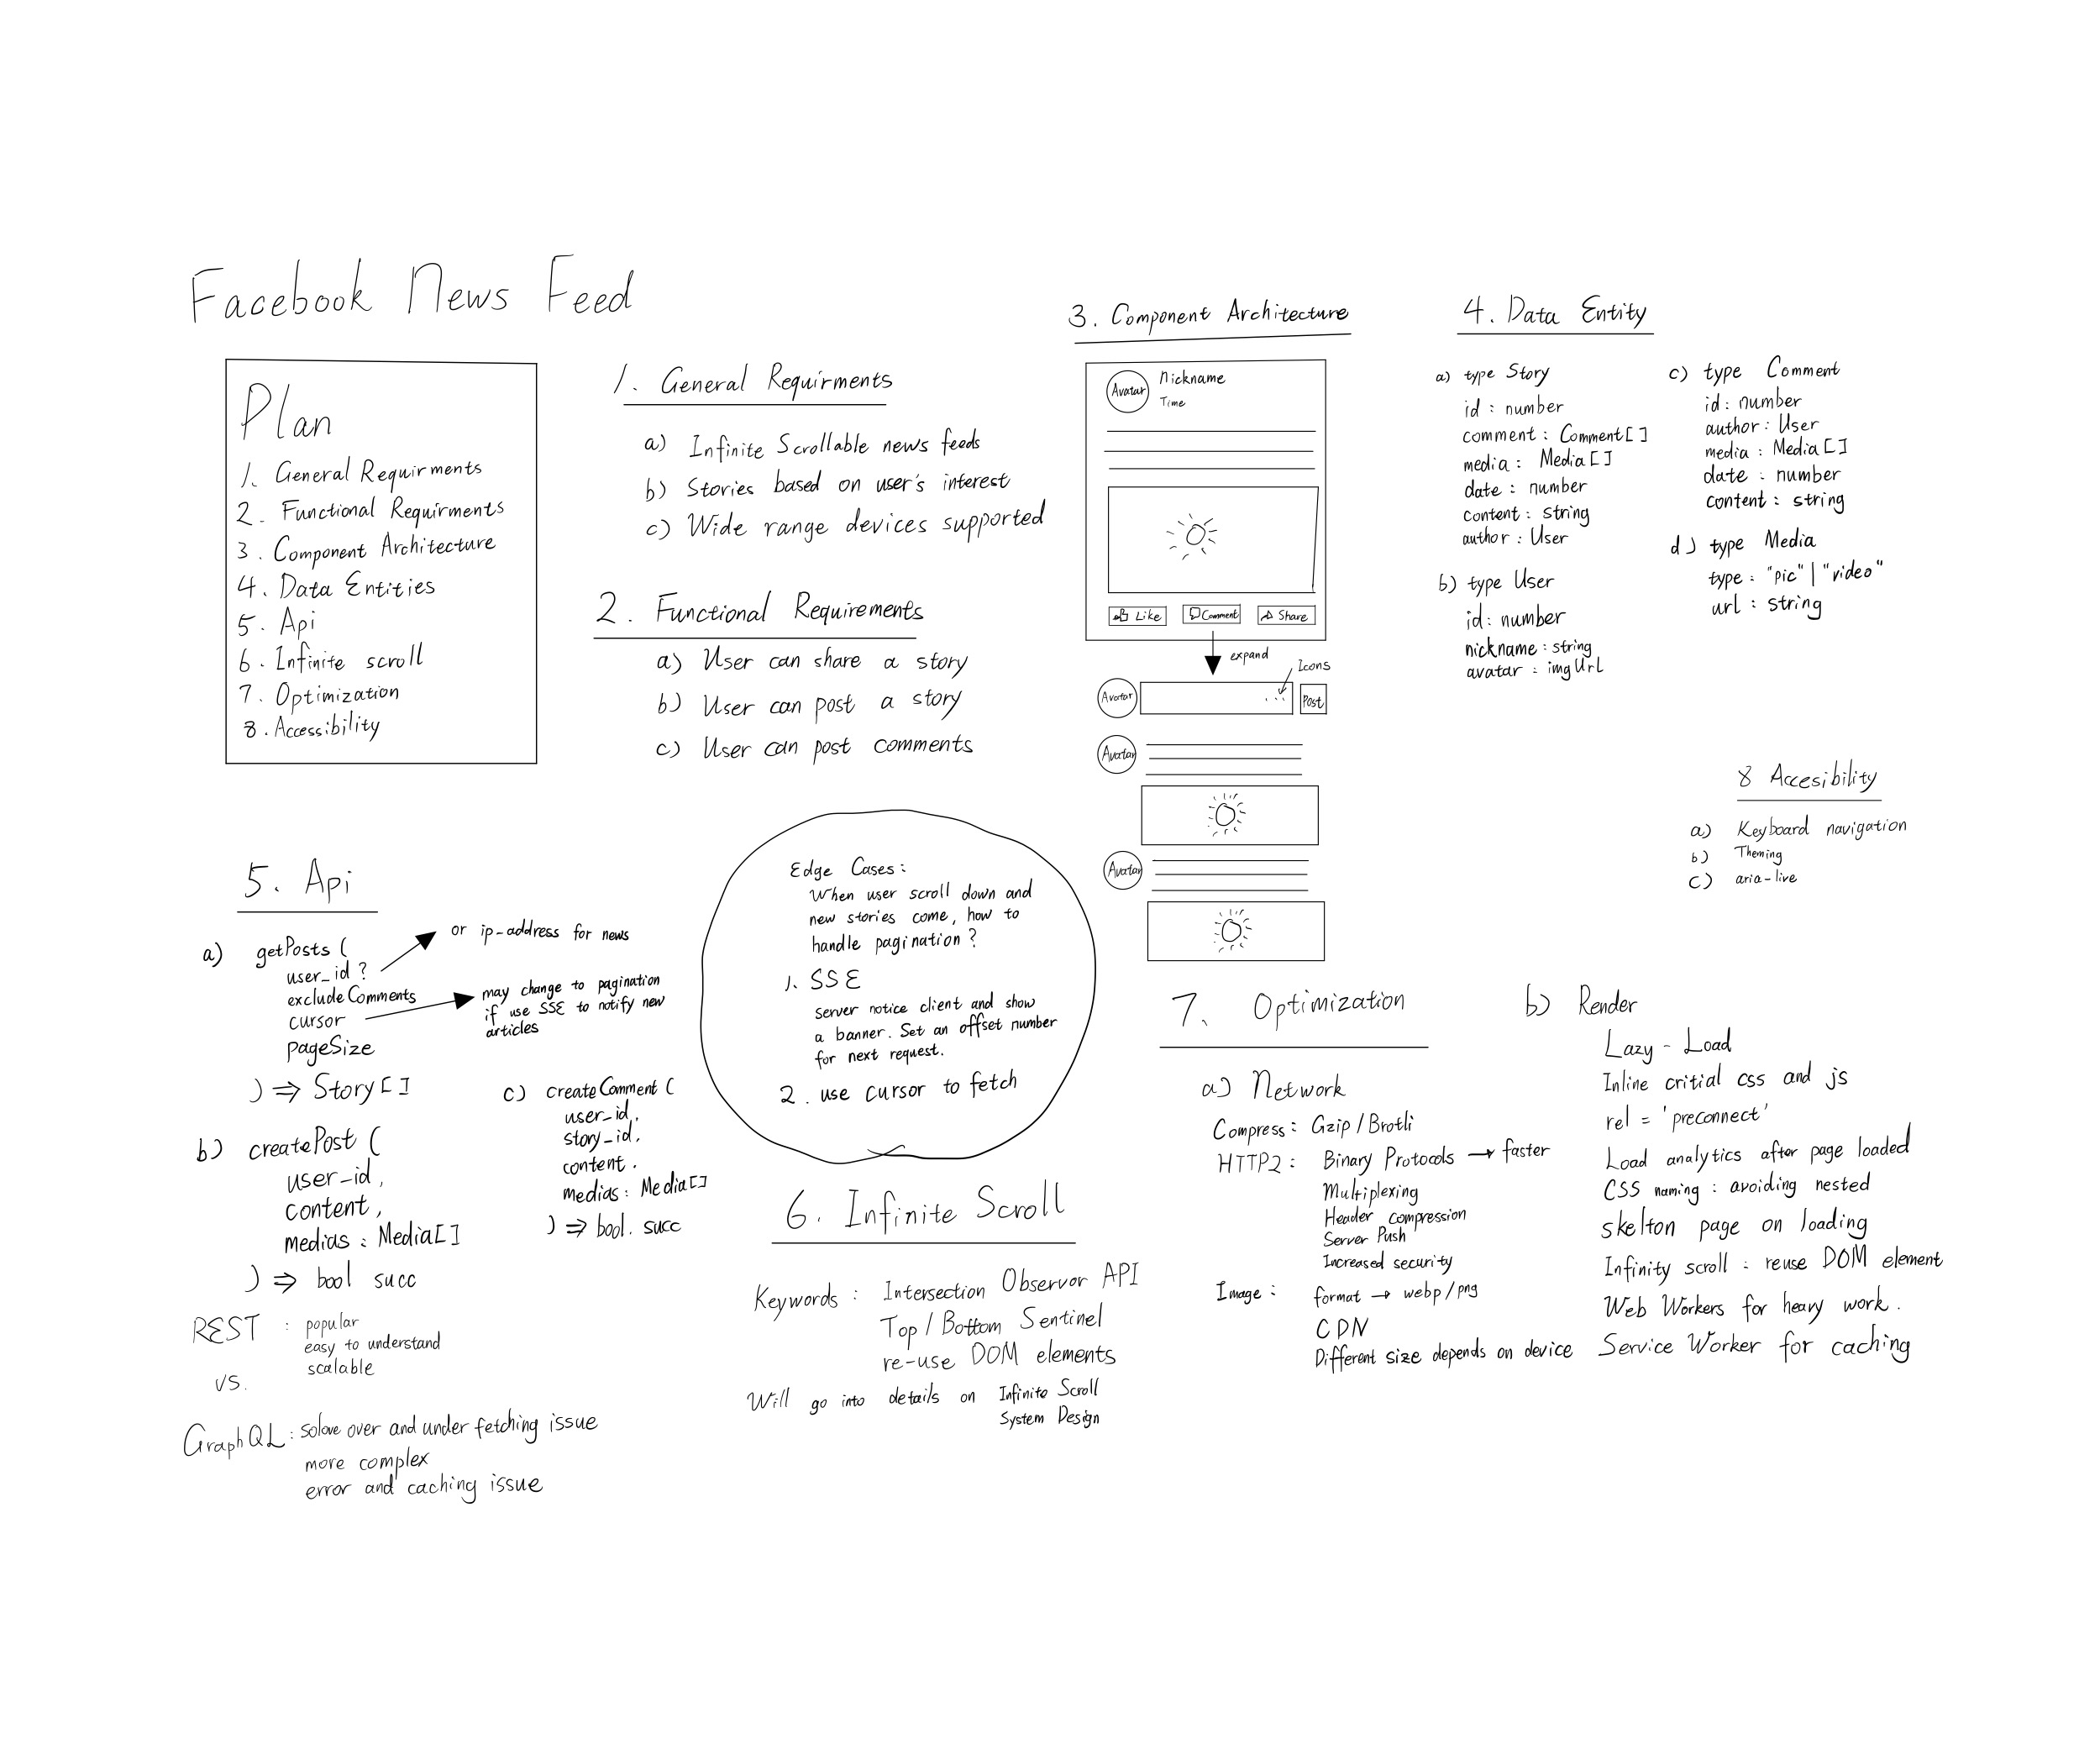 Facebook News Feed
Plan
1. General Requirments
2. Functional Requirments
3. Component Architecture
4. Data Entities
5. Api
6. Infinite scroll
7. Optimization
8. Accessibility
1. General Requirments
a) Infinite Scrollable news feeds
b) Stories based on user's interest
c) Wide range devices supported
2. Functional Requirements
a) User can share a story
b) User can post a story
c) User can post comments
3. Component Architecture
Avatar
Nickname
Time
Like
Comment
Share
expand
Icons
Avatar
...
Post
Avatar
Avatar
4. Data Entity
a) type Story
id : number
comment : Comment[]
media : Media[]
date : number
content : string
author : User
b) type User
id : number
nickname : string
avatar : imgUrl
c) type Comment
id : number
author : User
media : Media[]
date : number
content : string
d) type Media
type : "pic" | "video"
url : string
5. Api
a) getPosts (
user_id ?
or ip-address for news
excludeComments
cursor
may change to pagination
if use SSE to notify new
articles
pageSize
) => Story[]
b) createPost (
user-id,
content,
medias : Media[]
) => bool succ
c) createComment (
user-id,
story-id,
content.
medias : Media[]
) => bool. succ
REST : popular
easy to understand
scalable
VS.
GraphQL : solove over and under fetching issue
more complex
error and caching issue
Edge Cases:
When user scroll down and
new stories come, how to
handle pagination ?
1. SSE
server notice client and show
a banner. Set an offset number
for next request.
2. use cursor to fetch
6. Infinite Scroll
Keywords : Intersection Observor API
Top / Bottom Sentinel
re-use DOM elements
Will go into details on Infinite Scroll
System Design
7. Optimization
a) Network
Compress : Gzip / Brotli
HTTP2 : Binary Protocols → faster
Multiplexing
Header compression
Server Push
Increased security
Image : format → webp / png
CDN
Different size depends on device
b) Render
Lazy - Load
Inline critial css and js
rel = 'preconnect'
Load analytics after page loaded
CSS naming : avoiding nested
skelton page on loading
Infinity scroll : reuse DOM element
Web Workers for heavy work.
Service Worker for caching
8 Accesibility
a) Keyboard navigation
b) Theming
c) aria-live